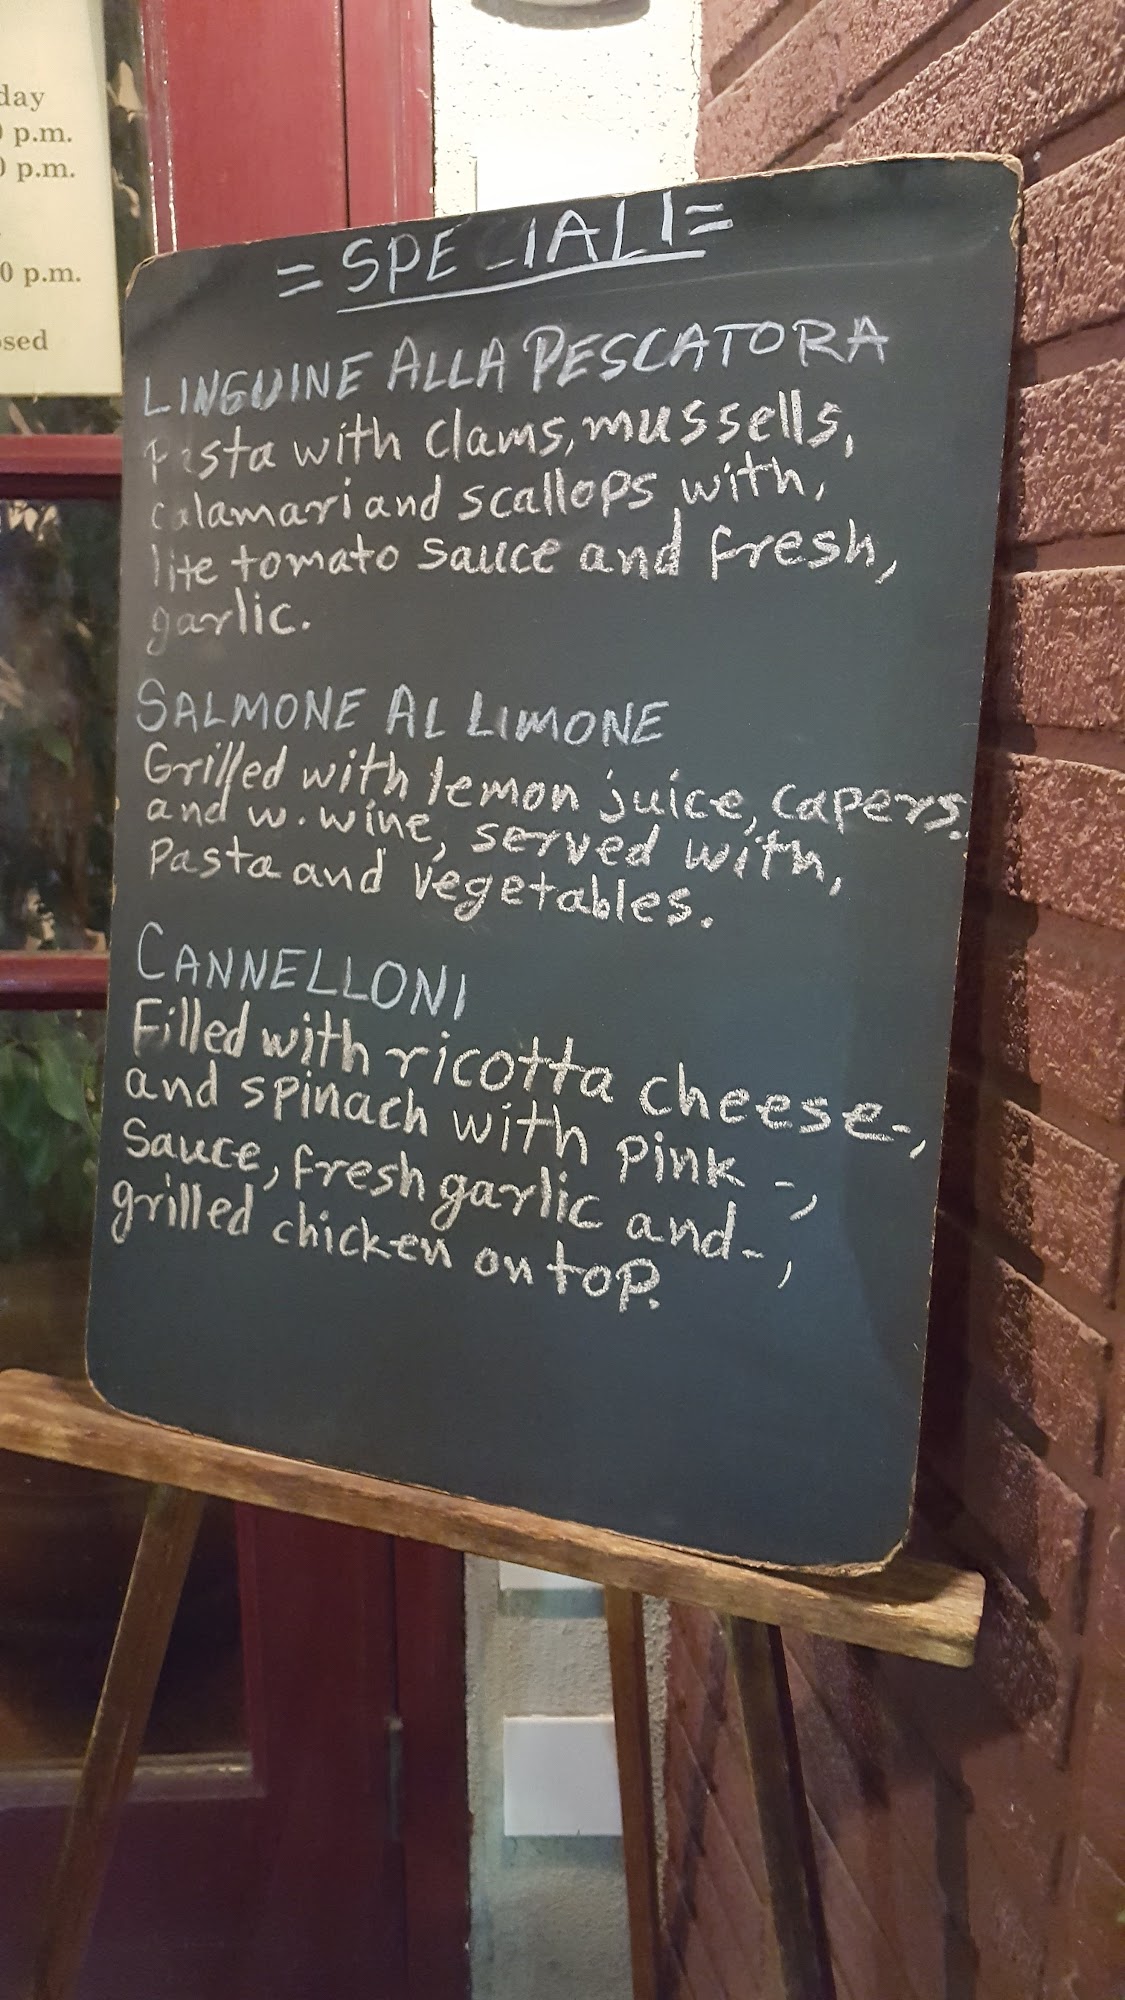 day
0 p.m.
0 p.m.
0 p.m.
osed
= SPECIALI =
LINGUINE ALLA PESCATORA
Pasta with clams, mussells,
calamari and scallops with,
lite tomato sauce and fresh,
garlic.
SALMONE AL LIMONE
Grilled with lemon juice, capers,
and w. wine, served with,
Pasta and vegetables.
CANNELLONI
Filled with ricotta cheese-,
and spinach with pink -,
Sauce, fresh garlic and-,
grilled chicken on top.